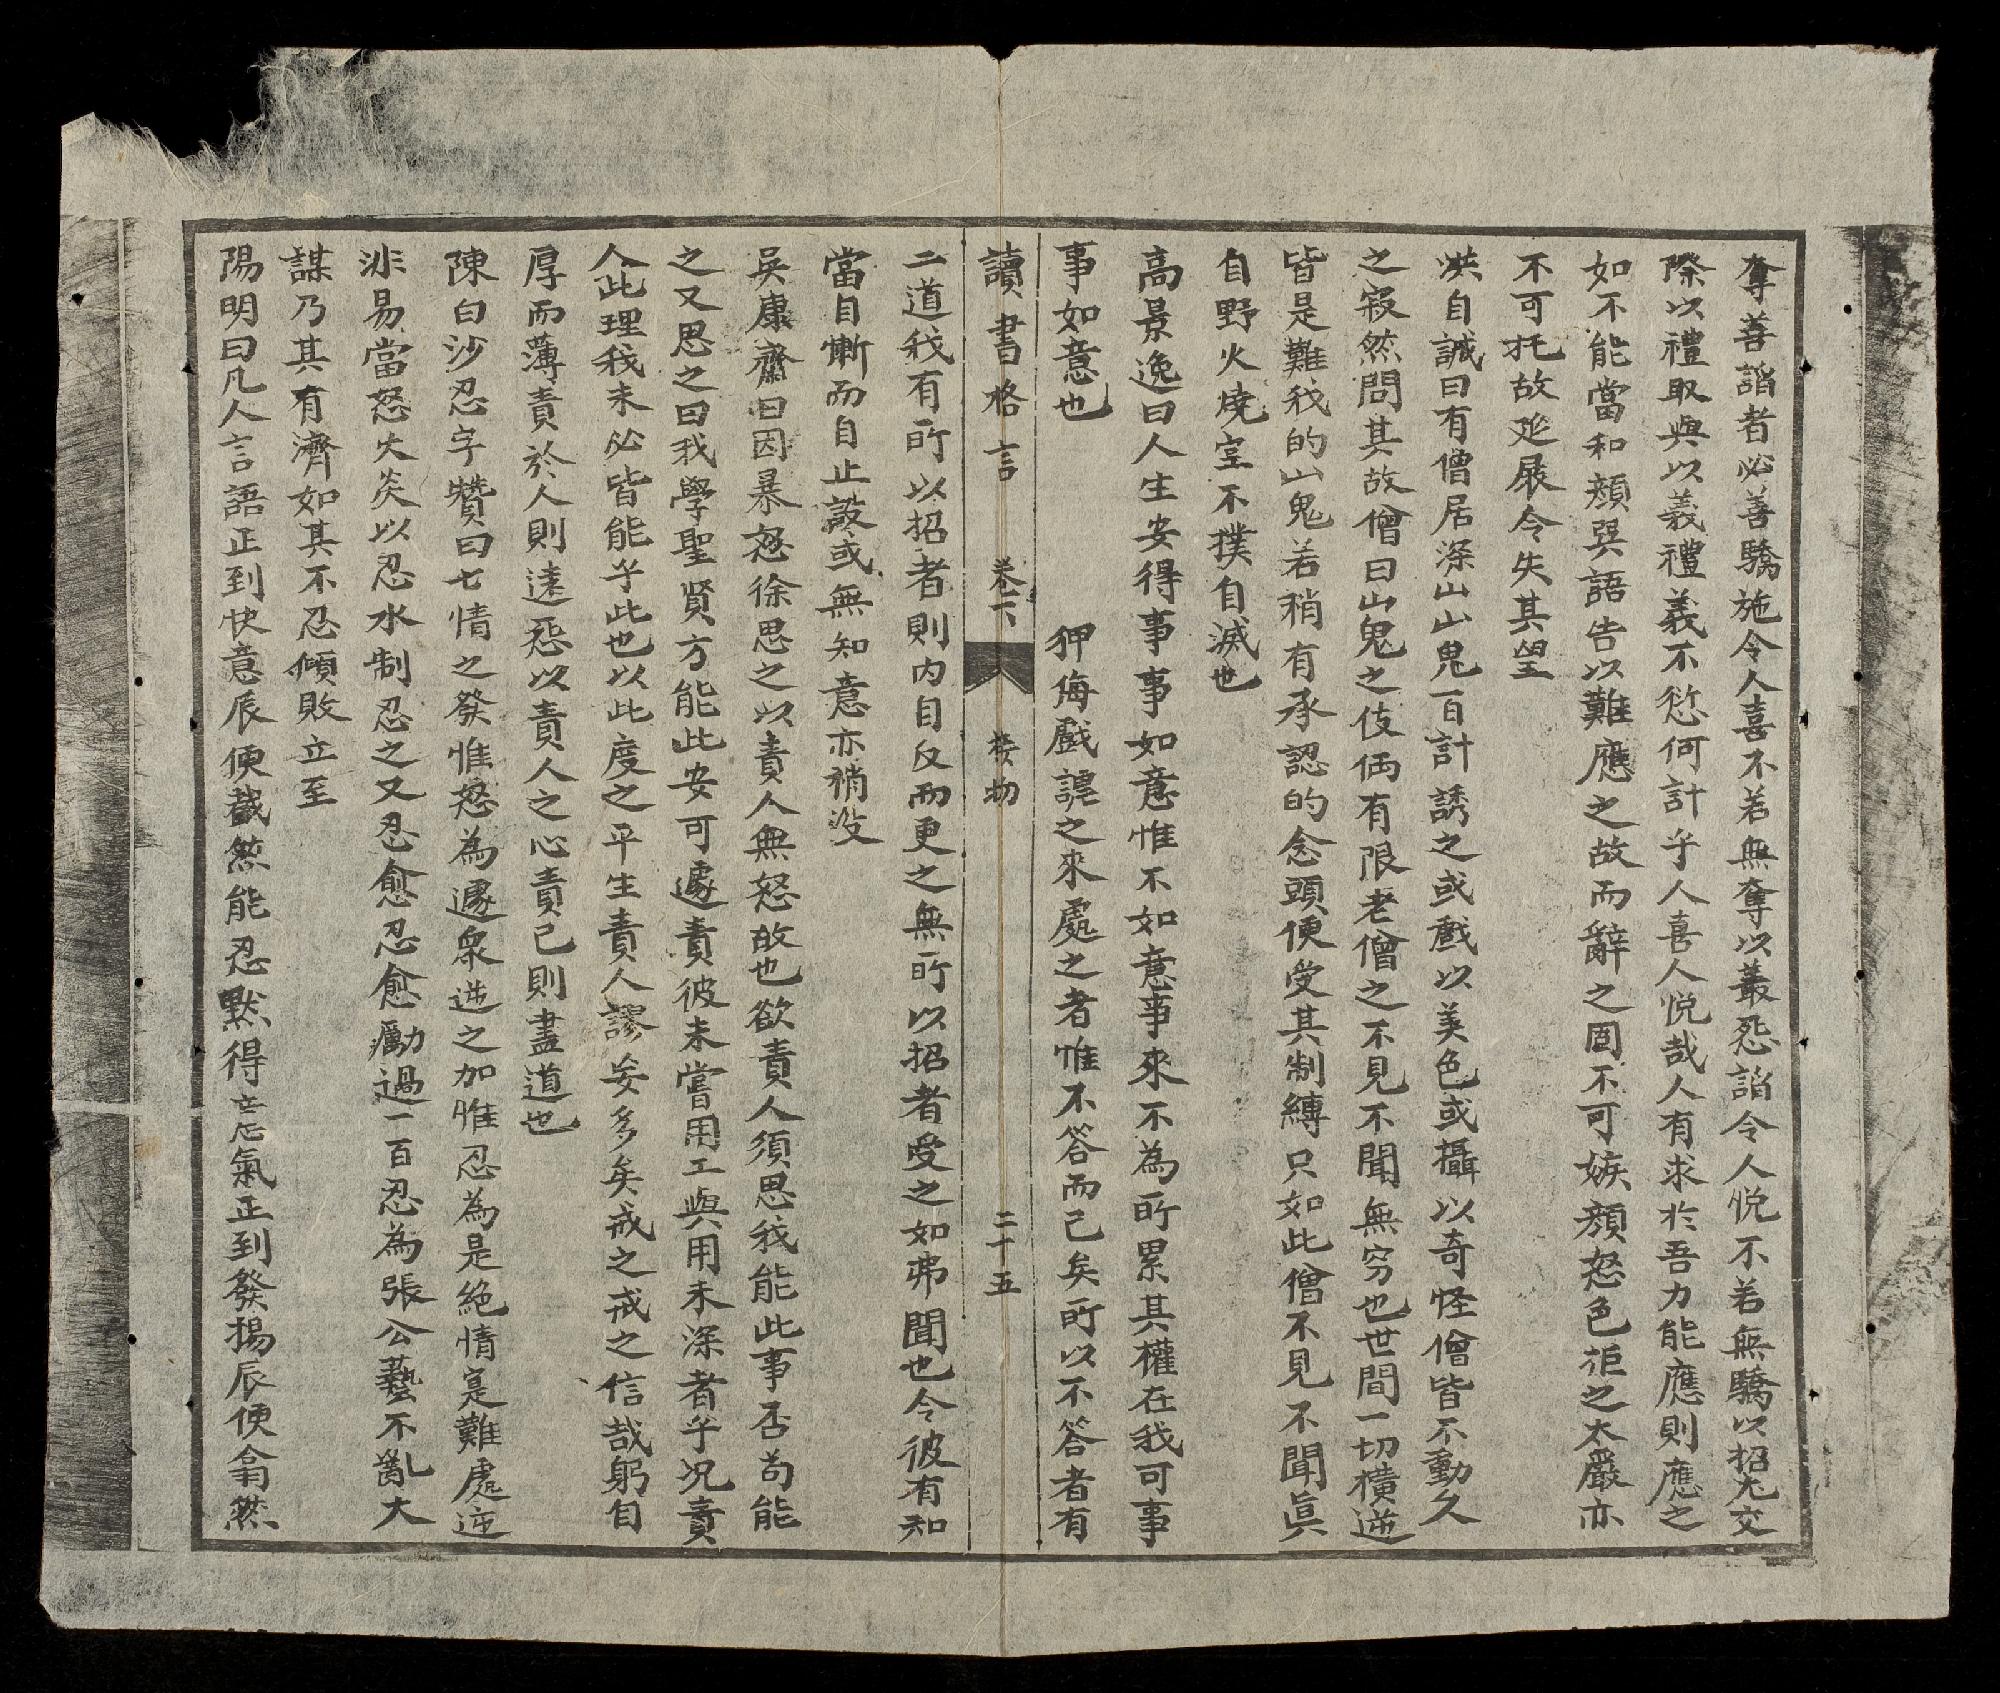 奪善諂者必善驕施令人喜不若無奪以叢怨諂令人悅不若無驕以招尤交
際以禮取與以義禮義不愆何計乎人喜人悅哉人有求於吾力能應則應之
如不能當和顏巽語告以難應之故而辭之固不可嫉顏怒色拒之太嚴亦
不可托故延展令失其望
洪自誠曰有僧居深山山鬼百計誘之或戲以美色或攝以奇怪僧皆不動久
之寂然問其故僧曰山鬼之伎倆有限老僧之不見不聞無窮也世間一切橫逆
皆是難我的山鬼若稍有承認的念頭便受其制縛只如此僧不見不聞眞
自野火燒空不撲自滅也
高景逸曰人生安得事事如意惟不如意事來不為所累其權在我可事
事如意也　　　狎侮戲謔之來處之者惟不答而已矣所以不答者有
讀書格言　卷下　接物　二十五
二道我有所以招者則內自反而更之無所以招者受之如弗聞也令彼有知
當自慚而自止設或無知意亦稍沒
吳康齋曰因暴怒徐思之以責人無怒故也欲責人須思我能此事否苟能
之又思之曰我學聖賢方能此安可遽責彼未嘗用工與用未深者乎况責
人此理我未必皆能乎此也以此度之平生責人謬妄多矣戒之戒之信哉躬自
厚而薄責於人則遠怨以責人之心責己則盡道也
陳白沙忍字贊曰七情之發惟怒為遽衆逆之加惟忍為是絕情寔難處逆
非易當怒火炎以忍水制忍之又忍愈忍愈勵過一百忍為張公藝不亂大
謀乃其有濟如其不忍傾敗立至
陽明曰凡人言語正到快意辰便截然能忍默得意氣正到發揚辰便翕然